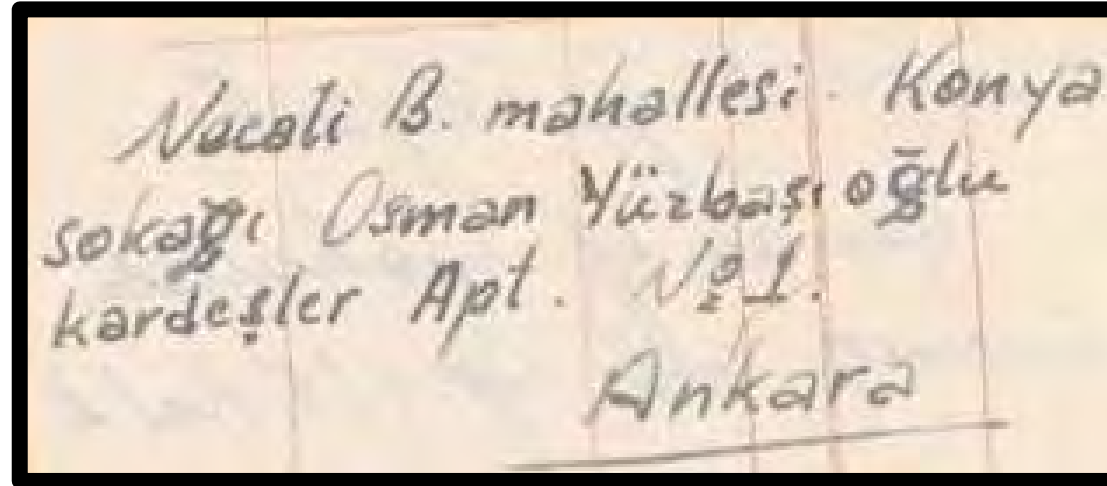 Necati B. mahallesi. Konya
sokağı Osman Yüzbaşıoğlu
kardeşler Apt. No 1.
Ankara